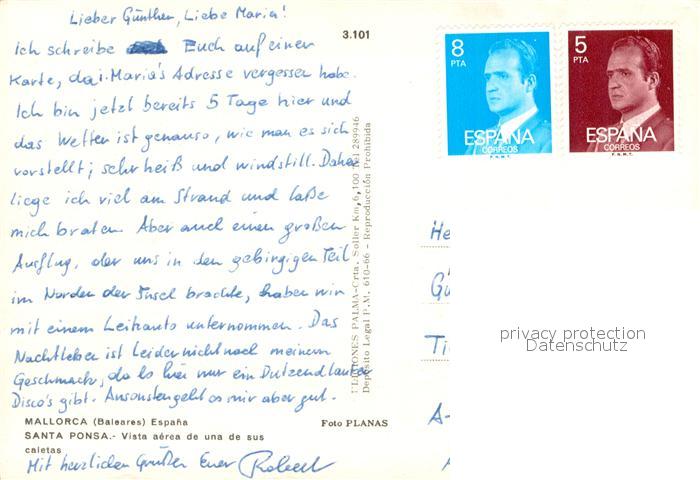 Lieber Günther, Liebe Maria!
Ich schreibe Euch auf einer
Karte, da i. Maria's Adresse vergessen habe.
Ich bin jetzt bereits 5 Tage hier und
das Wetter ist genauso, wie man es sich
vorstellt; sehr heiß und windstill. Daher
liege ich viel am Strand und laße
mich braten. Aber auch einen großen
Ausflug, der uns in den gebirgigen Teil
im Norden der Insel brachte, haben wir
mit einem Leihauto unternommen. Das
Nachtleben ist leider nicht nach meinem
Geschmack, da es hier nur ein Dutzend lauter
Disco's gibt. Ansonsten geht es mir aber gut.
MALLORCA (Baleares) España
SANTA PONSA.- Vista aérea de una de sus
caletas
Foto PLANAS
Mit herzlichen Grüßen Euer Robert
3.101
CIONES PALMA-Crta. Soller Km, 6,100 Tel 289946
Depósito Legal P.M. 610-66 - Reproducción Prohibida
8
PTA
ESPAÑA
CORREOS
F.N.M.T.
5
PTA
ESPAÑA
CORREOS
F.N.M.T.
He
Gü
Ti
A-
privacy protection
Datenschutz